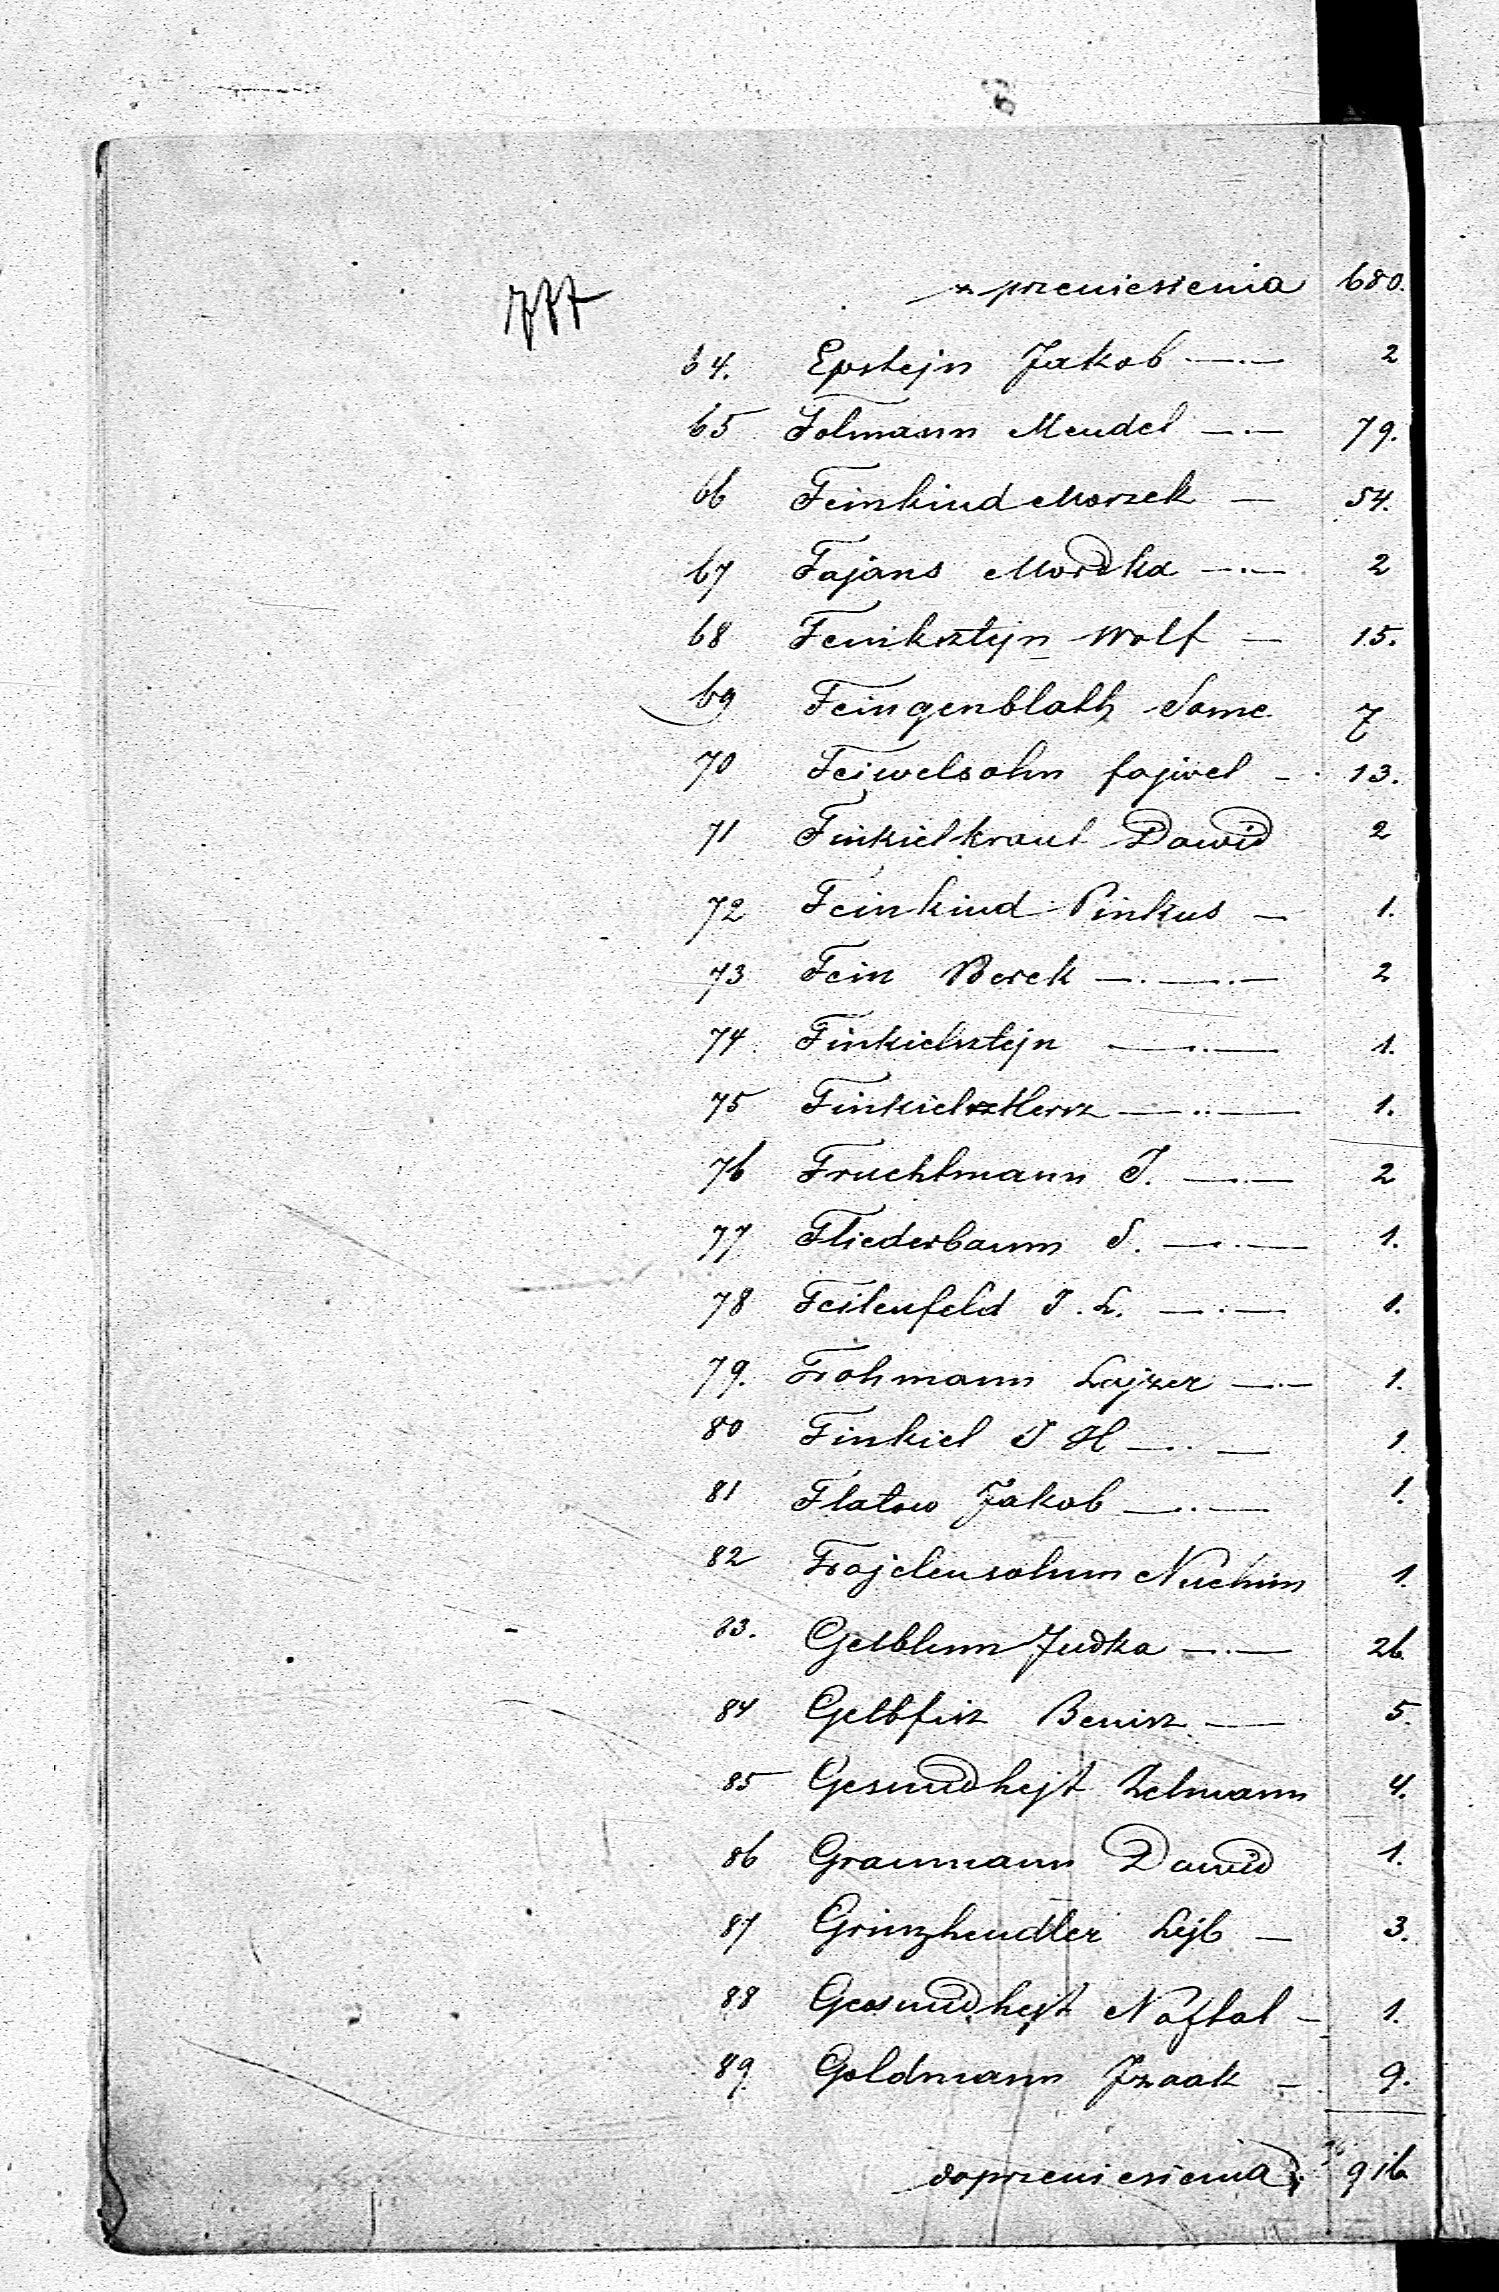 777
z przeniesienia 680.
64. Epstejn Jakob —.— 2
65 Folmann Mendel —.— 79.
66 Feinkind Moszek — 54.
67 Fajans Mordka —.— 2
68 Feniksztejn Wolf — 15.
69 Feingenblath 7
70 Feiwelsohn fajwel — 13.
71 Finkielkraut Dawid 2
72 Feinkind Pinkus — 1.
73 Fein Berek —.—.— 2
74. Finkielsztejn —..— 1.
75 Hersz —..— 1.
76 Fruchtmann I. —.— 2
77 Fliederbaum S. —.— 1.
78 Feilenfeld I. L. —.— 1.
79. Frohmann Lajzer —.— 1.
80 Finkiel I H —.— 1.
81 Flatow Jakob —..— 1.
82 Frajdensohnn Nuchim 1.
83. Gelblum Judka —.— 26.
84 Gelbfisz Benisz — 5.
85 Gesundhejt Zelmann 4.
86 Graumann Dawid 1.
87 Grinzhendler Lejb — 3.
88 Gesundhejt Naftal — 1.
89. Goldmann Izaak — 9.
do przeniesienia 916